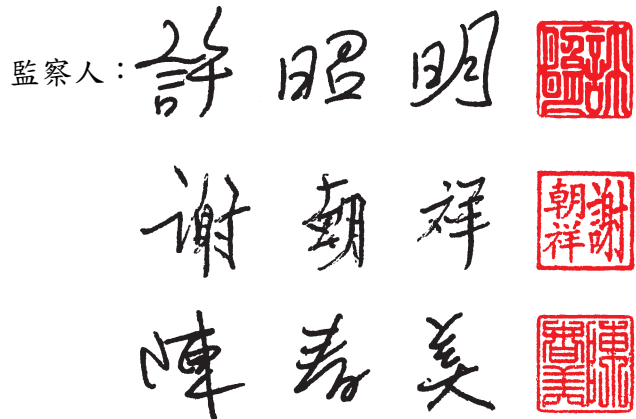 監察人：許昭明 許昭明
謝朝祥 謝朝祥
陳春美 陳春美